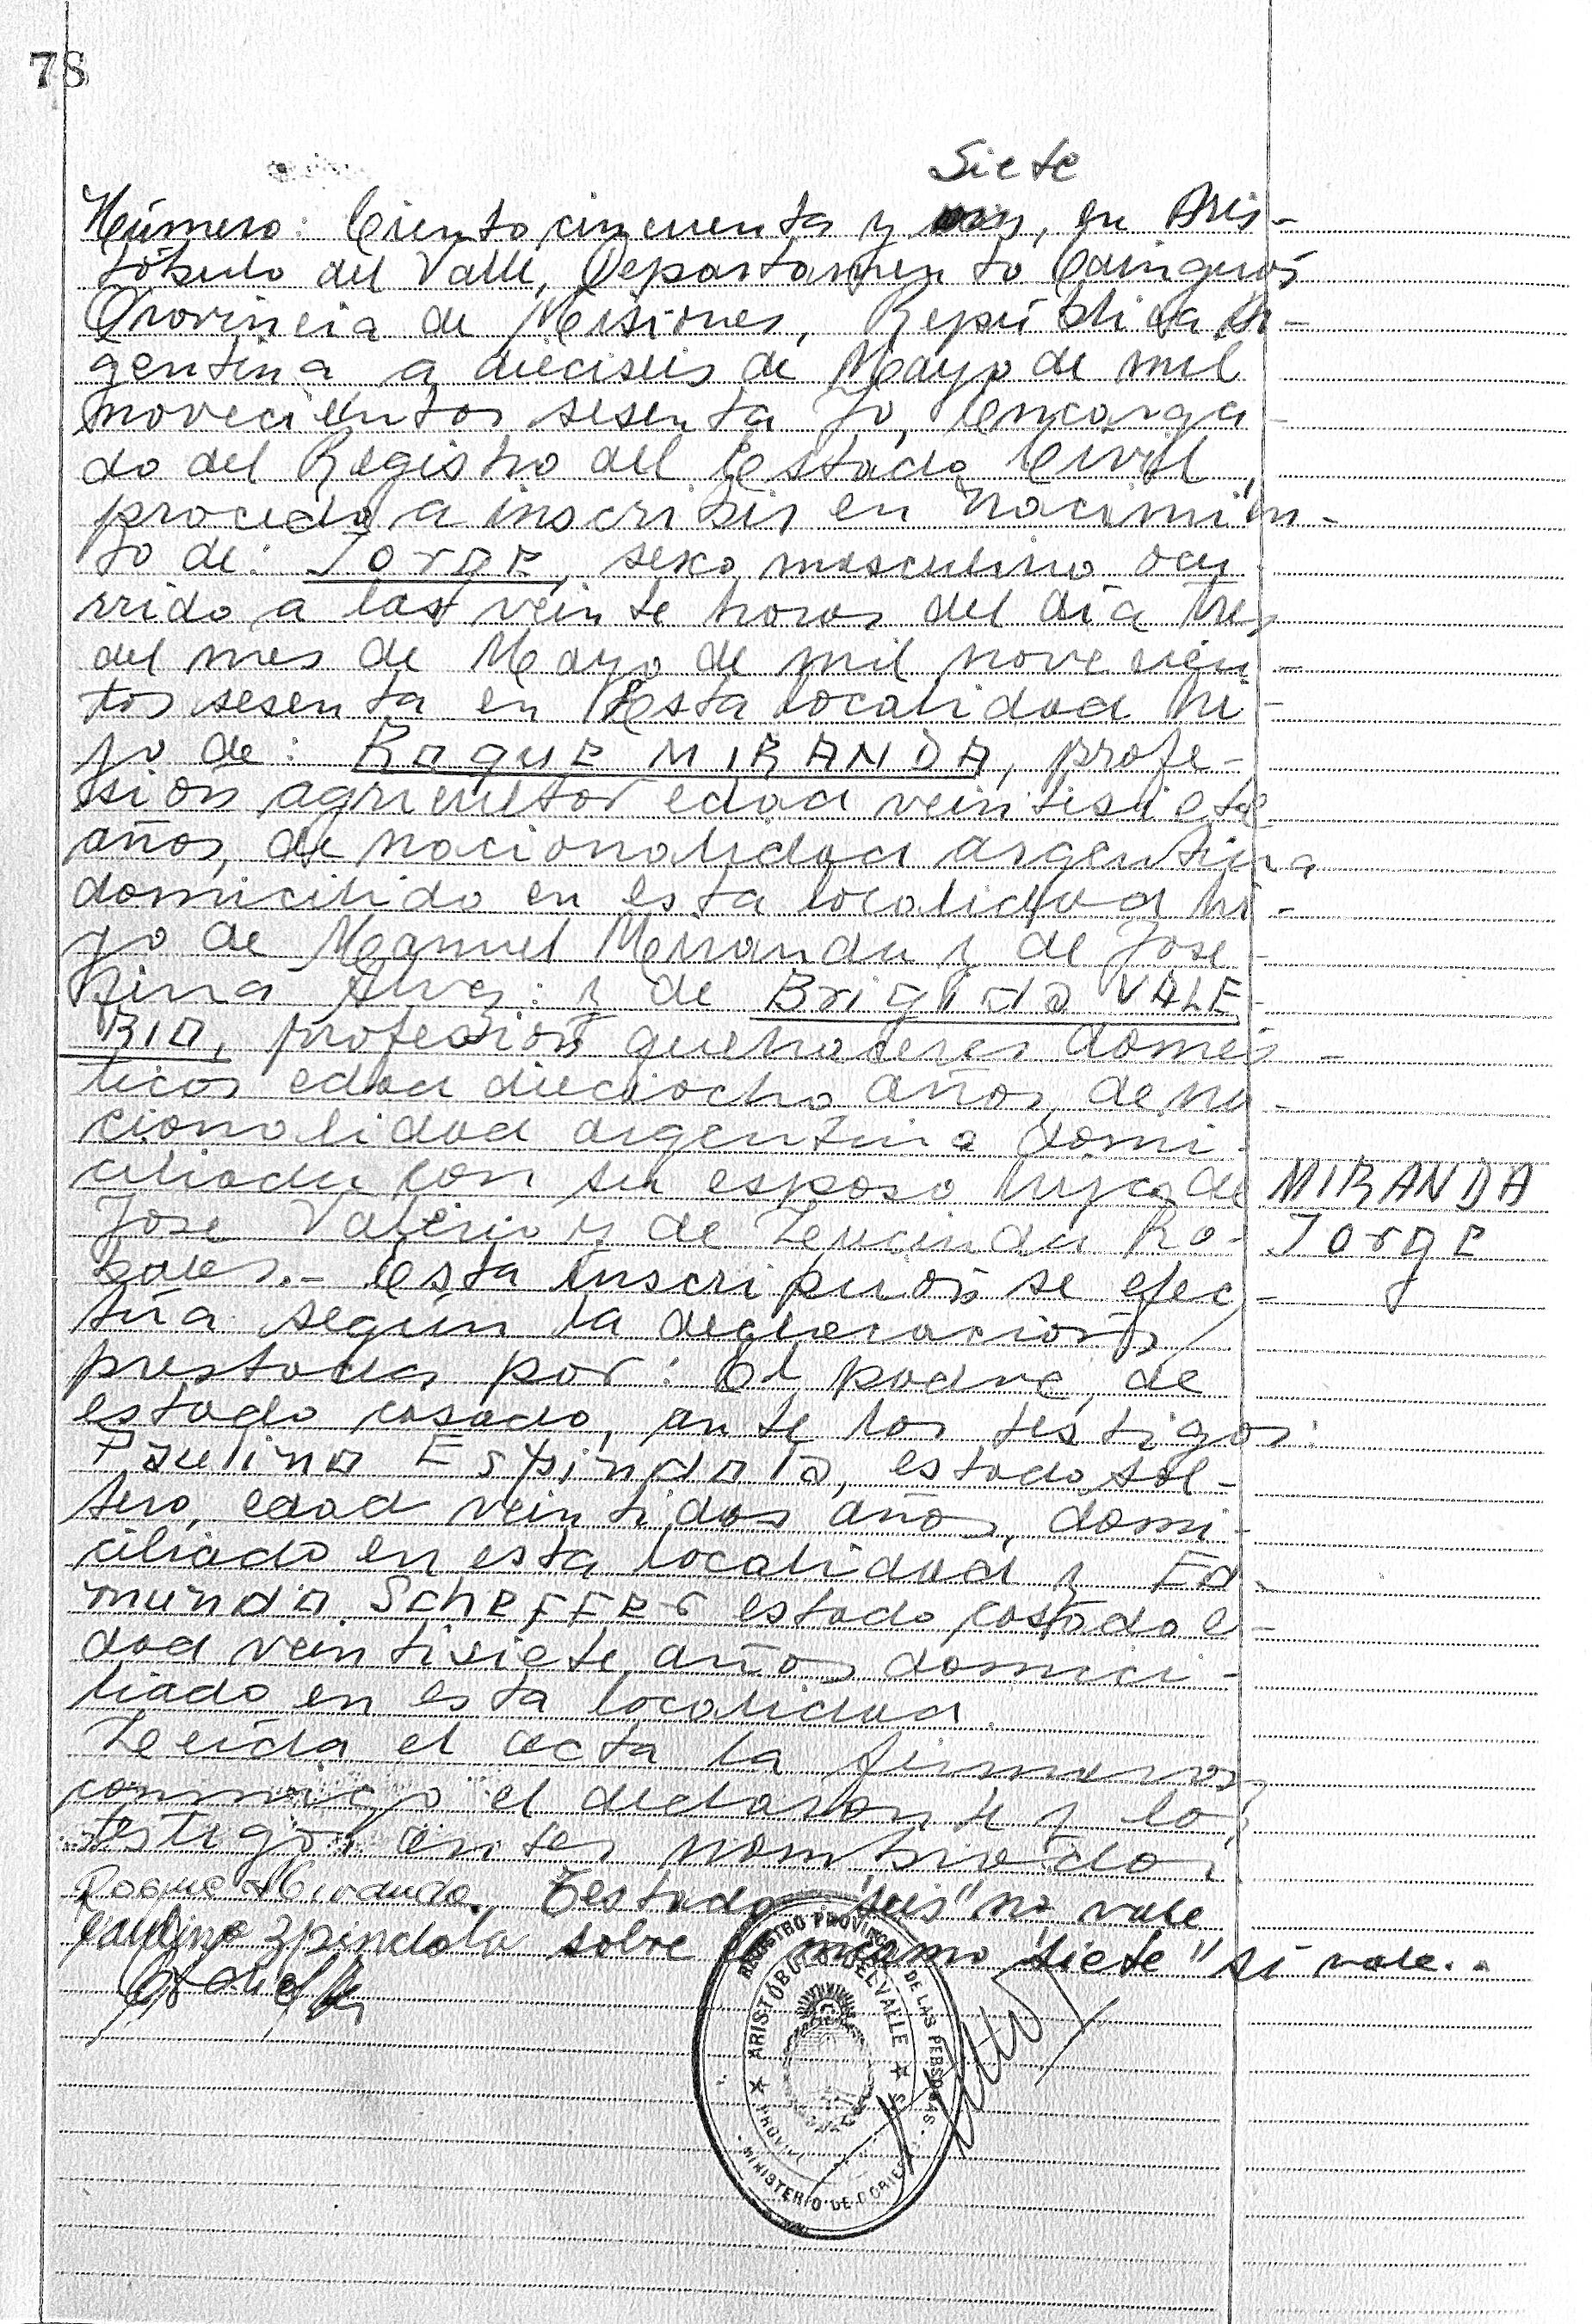 78
Siete
Número: Ciento cincuenta y seis, en Aris-
tóbulo del Valle, Departamento Cainguás
Provincia de Misiones, República Ar-
gentina a dieciseis de Mayo de mil
novecientos sesenta Yo, Encarga-
do del Registro del Estado Civil,
procedo a inscribir en nacimien-
to de: Jorge, sexo masculino ocu
rrido a las veinte horas del día tres
del mes de Mayo de mil novecien-
tos sesenta en Esta localidad hi-
jo de: Roque MIRANDA, profe-
sión agricultor edad veintisiete
años, de nacionalidad argentina
domicilido en esta localidad hi-
jo de Manuel Miranda y de Jose-
fina Alves: y de Brigida VALE-
RIO, profesión quehaceres domes-
ticos edad dieciocho años, de na-
cionalidad argentina domi-
ciliada con su esposo hija de
Jose Valerio y de Leucinda Ro-
bales.- Esta inscripción se efec-
túa según la declaración
prestada por: El padre, de
estado casado, ante los testigos:
Paulino Espindola, estado sol-
tero, edad veintidos años, domi-
ciliado en esta localidad y Ed-
mundo Scheffer estado casado e-
dad veintisiete años domici-
liado en esta localidad.
Leída el acta la firmaron
conmigo el declarante y los
testigos antes nombrados
MIRANDA
Jorge
Roque Miranda. Testado "seis" no vale
Paulino Espindola sobre mismo "siete" si vale..
REGISTRO PROVINCIAL DE LAS PERSONAS
ARISTOBULO DEL VALLE
PROVIN
MINISTERIO DE GOBIER